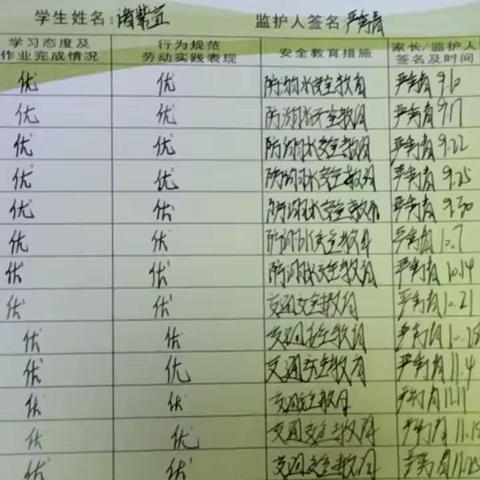 学生姓名: 诸紫宜 监护人签名 严秀青
学习态度及作业完成情况 行为规范劳动实践表现 安全教育措施 家长/监护人签名及时间
优 优 防溺水安全教育 严秀青 9.10
优 优 防溺水安全教育 严秀青 9.17
优 优 防溺水安全教育 严秀青 9.22
优 优 防溺水安全教育 严秀青 9.25
优 优 防溺水安全教育 严秀青 9.30
优 优 防溺水安全教育 严秀青 10.7
优 优 防溺水安全教育 严秀青 10.14
优 优 交通安全教育 严秀青 10.21
优 优 交通安全教育 严秀青 10.28
优 优 交通安全教育 严秀青 11.4
优 优 交通安全教育 严秀青 11.11
优 优 交通安全教育 严秀青 11.18
优 优 交通安全教育 严秀青 11.25